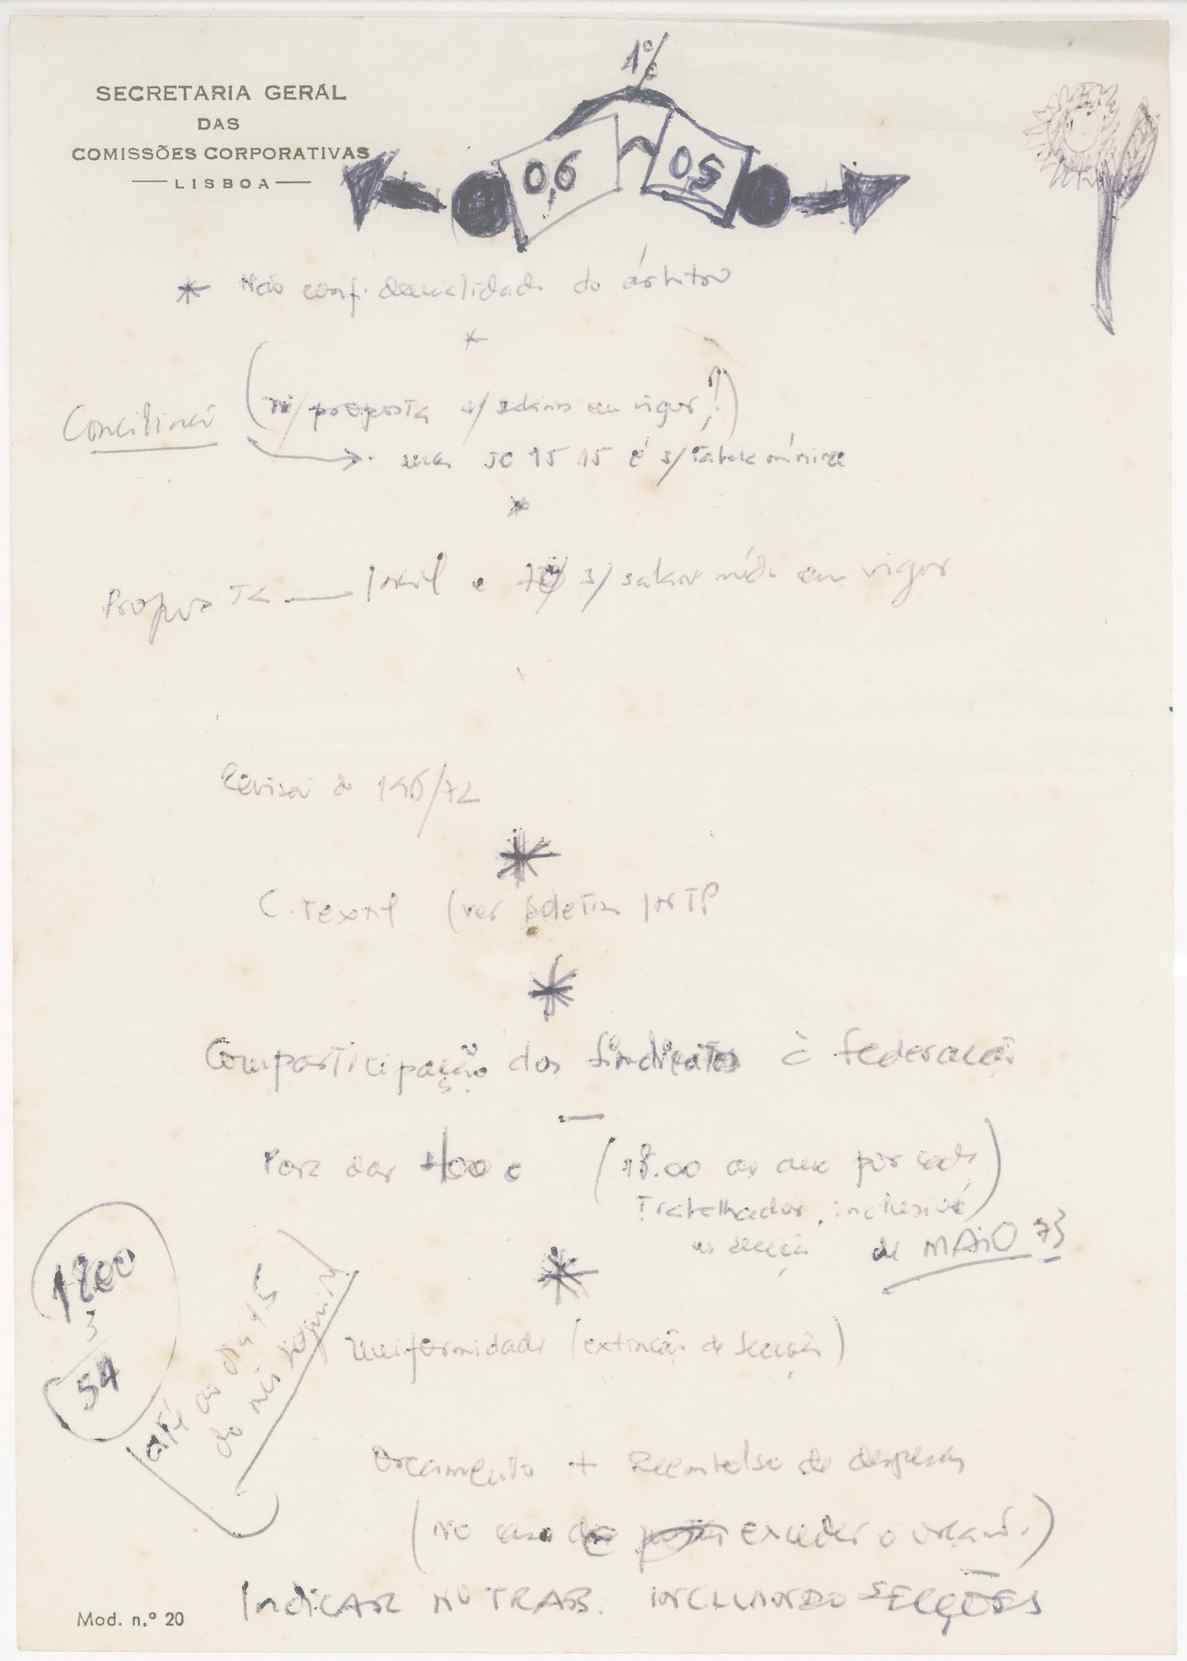 SECRETARIA GERAL
DAS
COMISSÕES CORPORATIVAS
LISBOA
1%
0,6
0,5
* Não confidencialidade do árbitro
*
Conciliação (n/ proposta s/ salários em vigor!)
mas 50 15 15 é s/ tabela mínima
*
Proposta — s/ salário médio em vigor
Revisão do 196/72
*
C. Textil (ver Boletim INTP
*
Comparticipação dos Sindicatos à Federação
—
Para dar (18.00 ao ano por cada)
Trabalhador, inclusivé
as secções de MAIO 73
*
1800
3
54
até ao dia 15
do mês seguinte
Uniformidade (extinção de secções)
Orçamento + Reembolso de despesas
(No caso de exceder o orçam.)
Indicar Nº TRAB. INCLUINDO SECÇÕES
Mod. n.º 20